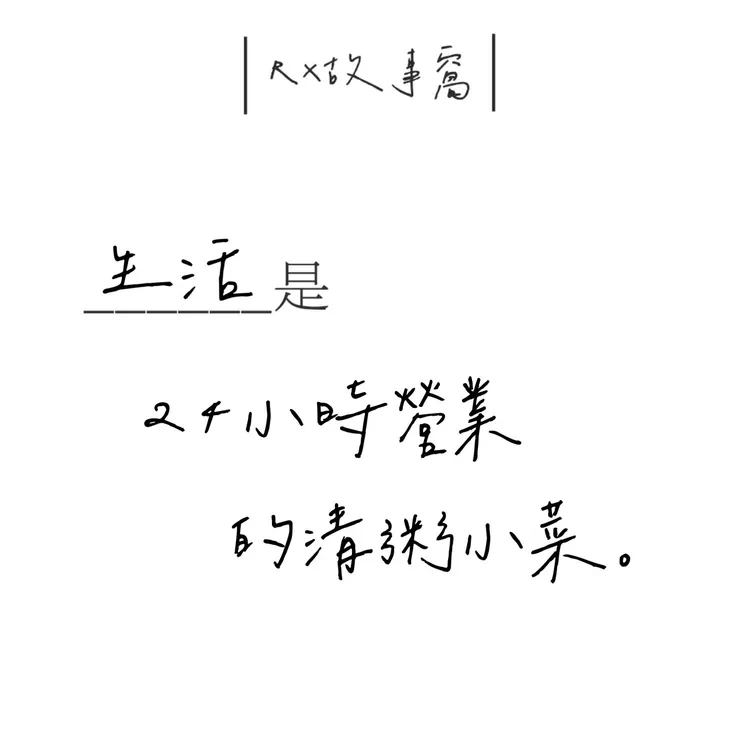 RX故事窩
生活是
24小時營業
的清粥小菜。